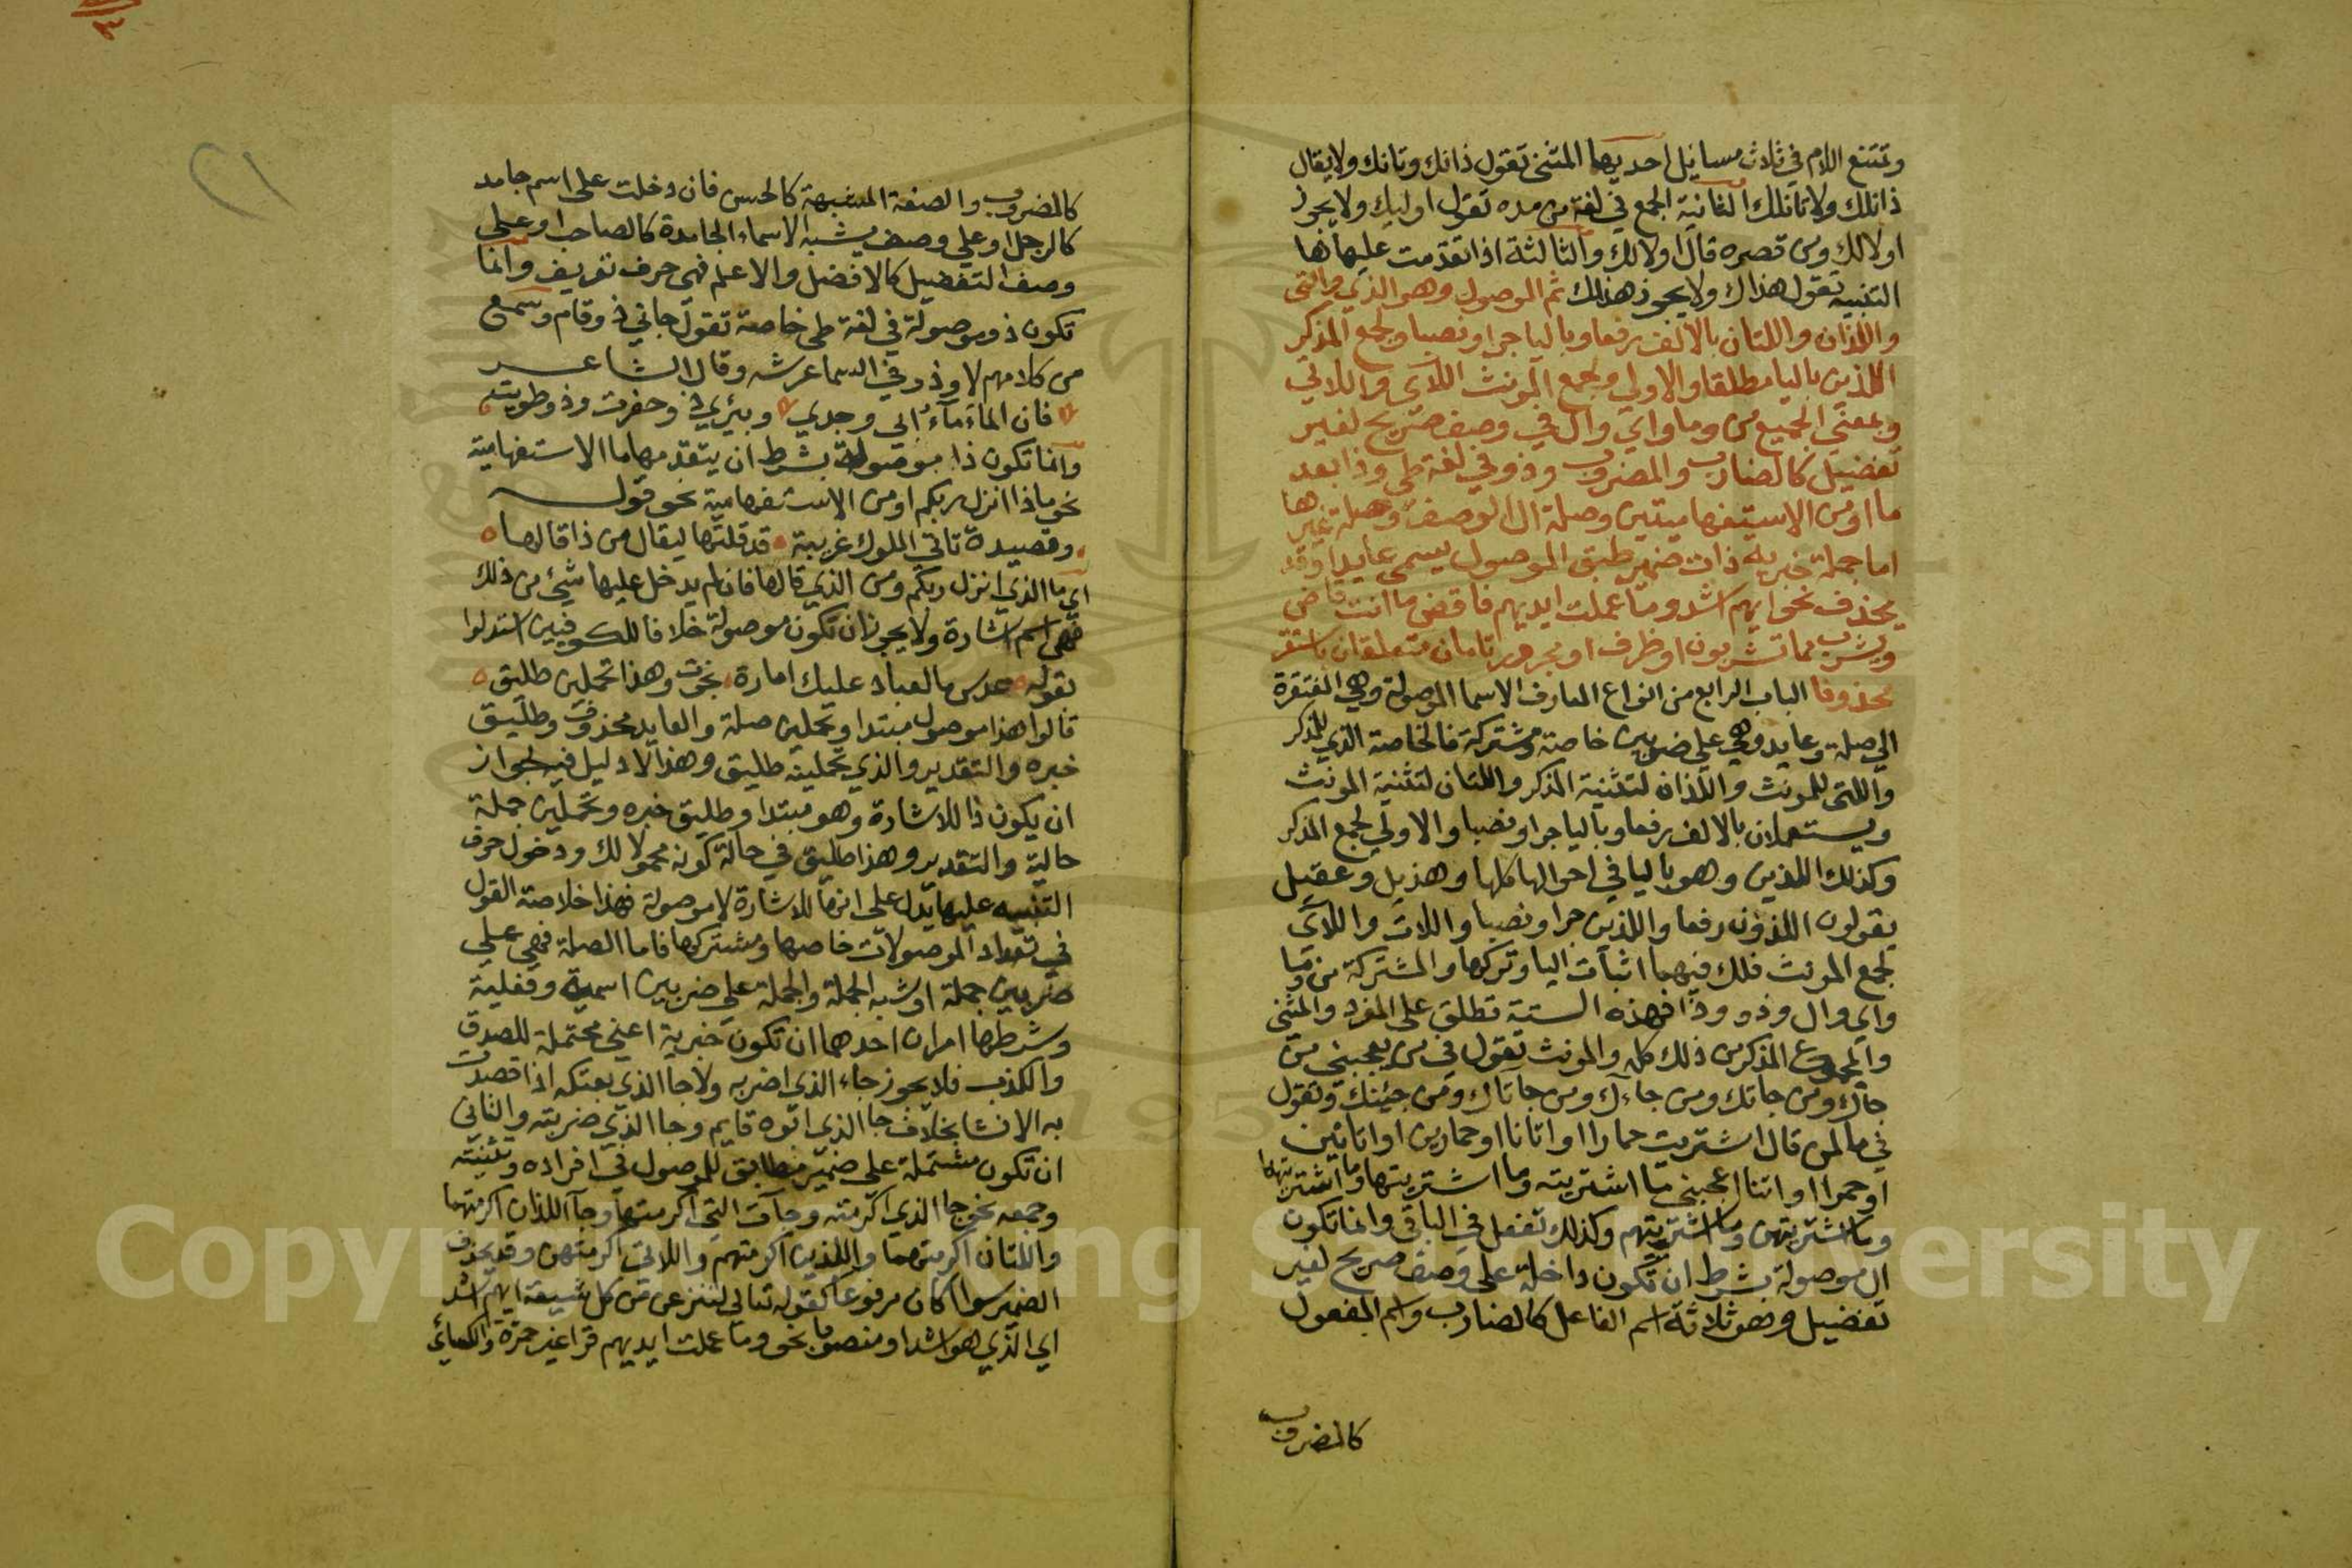 وتمتنع اللام في ثلاث مسايل احديها المثنى تقول ذانك وتانك ولا يقال
ذانلك ولا تانلك الثانية الجمع في لغة من مده تقول اوليك ولا يجوز
اولالك ومن قصره قال اولالك والثالثة اذا تقدمت عليها ها
التنبيه تقول هذاك ولا يجوز هذلك ثم الموصول وهو الذي والتى
واللذان واللتان بالالف رفعا وباليا جرا ونصبا ولجمع المذكر
اللذين باليا مطلقا والاولي ولجمع المونث اللآي واللاتي
وبمعني الجميع من وما واي وال في وصف صريح لغير
تفضيل كالضارب والمضروب وذو في لغة طي وذا بعد
ما او من الاستفهاميتين وصلة ال الوصف وصلة غيرها
اما جملة خبرية ذات ضمير طبق الموصول يسمى عايدا وقد
يحذف نحو ايهم اشد وما عملت ايديهم فاقض ما انت قاض
ويشرب مما تشربون او ظرف او مجرور تامان متعلقان باستقر
محذوفا الباب الرابع من انواع المعارف الاسما الموصولة وهي المفتقرة
الي صلة وعايد وهي علي ضربين خاصة ومشتركة فالخاصة الذي للمذكر
واللتى للمونث واللذان لتثنية المذكر واللتان لتثنية المونث
ويستعملان بالالف رفعا وباليا جرا ونصبا والاولي لجمع المذكر
وكذلك اللذين وهو باليا في احوالها كلها وهذيل وعقيل
يقولون اللذون رفعا واللذين جرا ونصبا واللات واللآي
لجمع المونث فلك فيهما اثبات اليا وتركها والمشتركة من وما
واي وال وذو وذا فهذه الستة تطلق على المفرد والمثنى
والمجموع المذكر من ذلك كله والمونث تقول في من يعجبني من
جاك ومن جاتك ومن جاءك ومن جاتاك ومن جيئنك وتقول
في ما لمن قال اشتريت حمارا او اتانا او حمارين او اتانين
او حمرا او اتنا اعجبني ما اشتريته وما اشتريتها وما اشتريتهما
وما اشتريتهن وما اشتريتهم وكذلك تفعل في الباقي وانما تكون
ال موصولة بشرط ان تكون داخلة على وصف صريح لغير
تفضيل وهو ثلاثة اسم الفاعل كالضارب واسم المفعول
كالمضروب
كالمضروب والصفة المشبهة كالحسن فان دخلت على اسم جامد
كالرجل او علي وصف يشبه الاسماء الجامدة كالصاحب او على
وصف التفضيل كالافضل والاعلم فهي حرف تعريف وانما
تكون ذو موصولة في لغة طي خاصة تقول جاني ذو قام وسمع
من كلامهم لا وذو في السما عرشه وقال الشاعر
فان الماء مآء ابي وجدي وبئري ذو حفرت وذو طويت
وانما تكون ذا موصولة بشرط ان يتقدمها ما الاستفهامية
نحو ماذا انزل ربكم او من الاستفهامية نحو قول
وقصيدة تاتي الملوك غريبة قد قلتها ليقال من ذا قالها
اي ما الذي انزل ربكم ومن الذي قالها فان لم يدخل عليها شيئ من ذلك
فهي اسم اشارة ولا يجوز ان تكون موصولة خلافا للكوفيين استدلوا
بقوله عدس ما لعباد عليك امارة نجوت وهذا تحملين طليق
قالوا هذا موصول مبتدا وتحملين صلة والعايد محذوف وطليق
خبره والتقدير والذي تحملينه طليق وهذا لا دليل فيه لجواز
ان يكون ذا للاشارة وهو مبتدا وطليق خبره وتحملين جملة
حالية والتقدير وهذا طليق في حالة كونه محمولا لك ودخول حرف
التنبيه عليها يدل على انها للاشارة لا موصولة فهذا خلاصة القول
في تعداد الموصولات خاصها ومشتركها فاما الصلة فهي علي
ضربين جملة او شبه الجملة والجملة علي ضربين اسمية وفعلية
وشرطها امران احدهما ان تكون خبرية اعني محتملة للصدق
والكذب فلا يجوز جاء الذي اضربه ولا جا الذي بعتكه اذا قصدت
به الانشا بخلاف جا الذي ابوه قايم وجا الذي ضربته والثاني
ان تكون مشتملة على ضمير مطابق للموصول في افراده وتثنيته
وجمعه نحو جا الذي اكرمته وجآت التي اكرمتها وجآ اللذان اكرمتهما
واللتان اكرمتهما واللذين اكرمتهم واللاتي اكرمتهن وقد يحذف
الضمير سوا كان مرفوعا كقوله تعالي لننزعن من كل شيعة ايهم اشد
اي الذي هو اشد او منصوبا نحو وما عملت ايديهم قرا غير حمزة والكسائي
Copyright © King Saud University